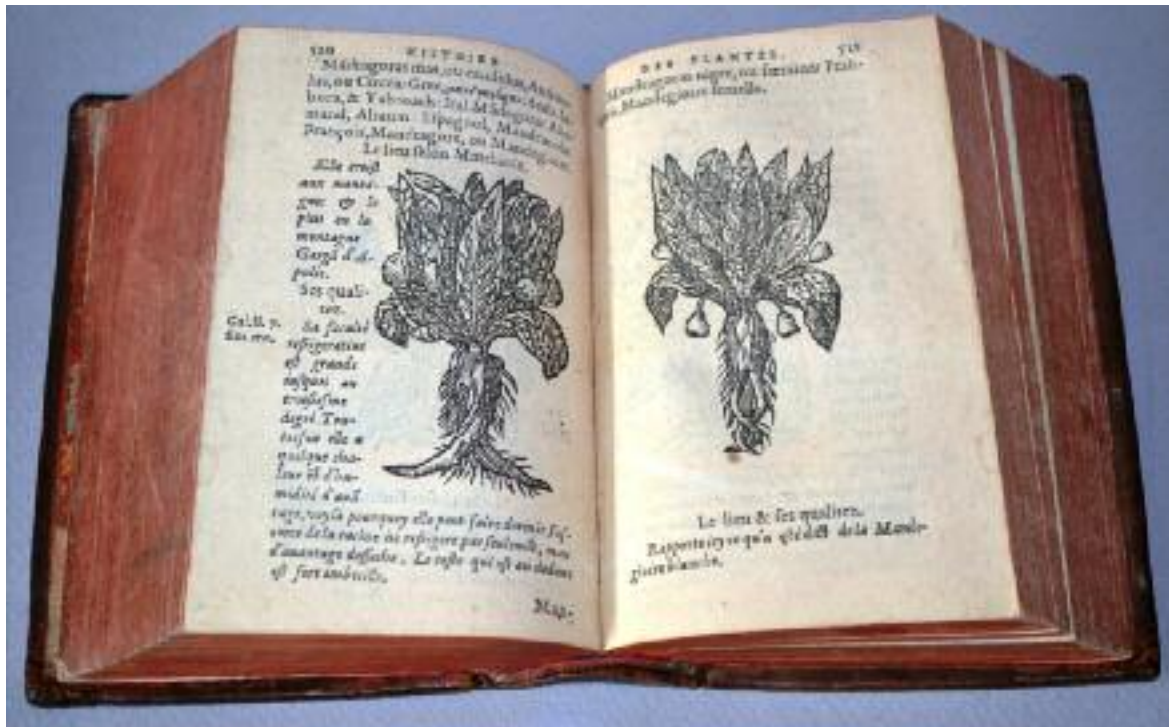 520 HISTOIRE
Mandragoras mas, ou candidus,
ou Circea: Grec,
& Yabrouach: Ital. Mãdragora:
Espagnol,
François, Mandragore, ou
Le lieu selon
Elle croist
aux monta-
gnes & le
plus en la
montagne
Gargã d'A-
pulie.
Ses quali-
tez.
Gal. li. 7.
Sa faculté
refrigeratiue
est grande
iusques au
troisiesme
degré Tou-
tesfois elle a
quelque cha-
leur & d'hu-
midité d'auã
tage, voyla pourquoy elle peut faire dormir l'es-
corce de la racine ne refrigere pas seulemẽt, mais
d'auantage desseche. Le reste qui est au dedans
est fort imbecile.
Map-
DES PLANTES. 521
Mandragoras niger, ou fœmina: Itali-
Mandragora femelle.
Le lieu & ses qualitez.
Rapporte icy ce qu'a esté dict de la Mandr-
gore blanche.